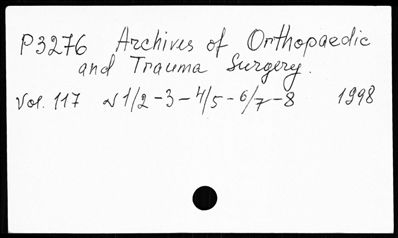 P3276 Archives of Orthopaedic
and Trauma Surgery.
Vol. 117 N 1/2-3-4/5-6/7-8 1998